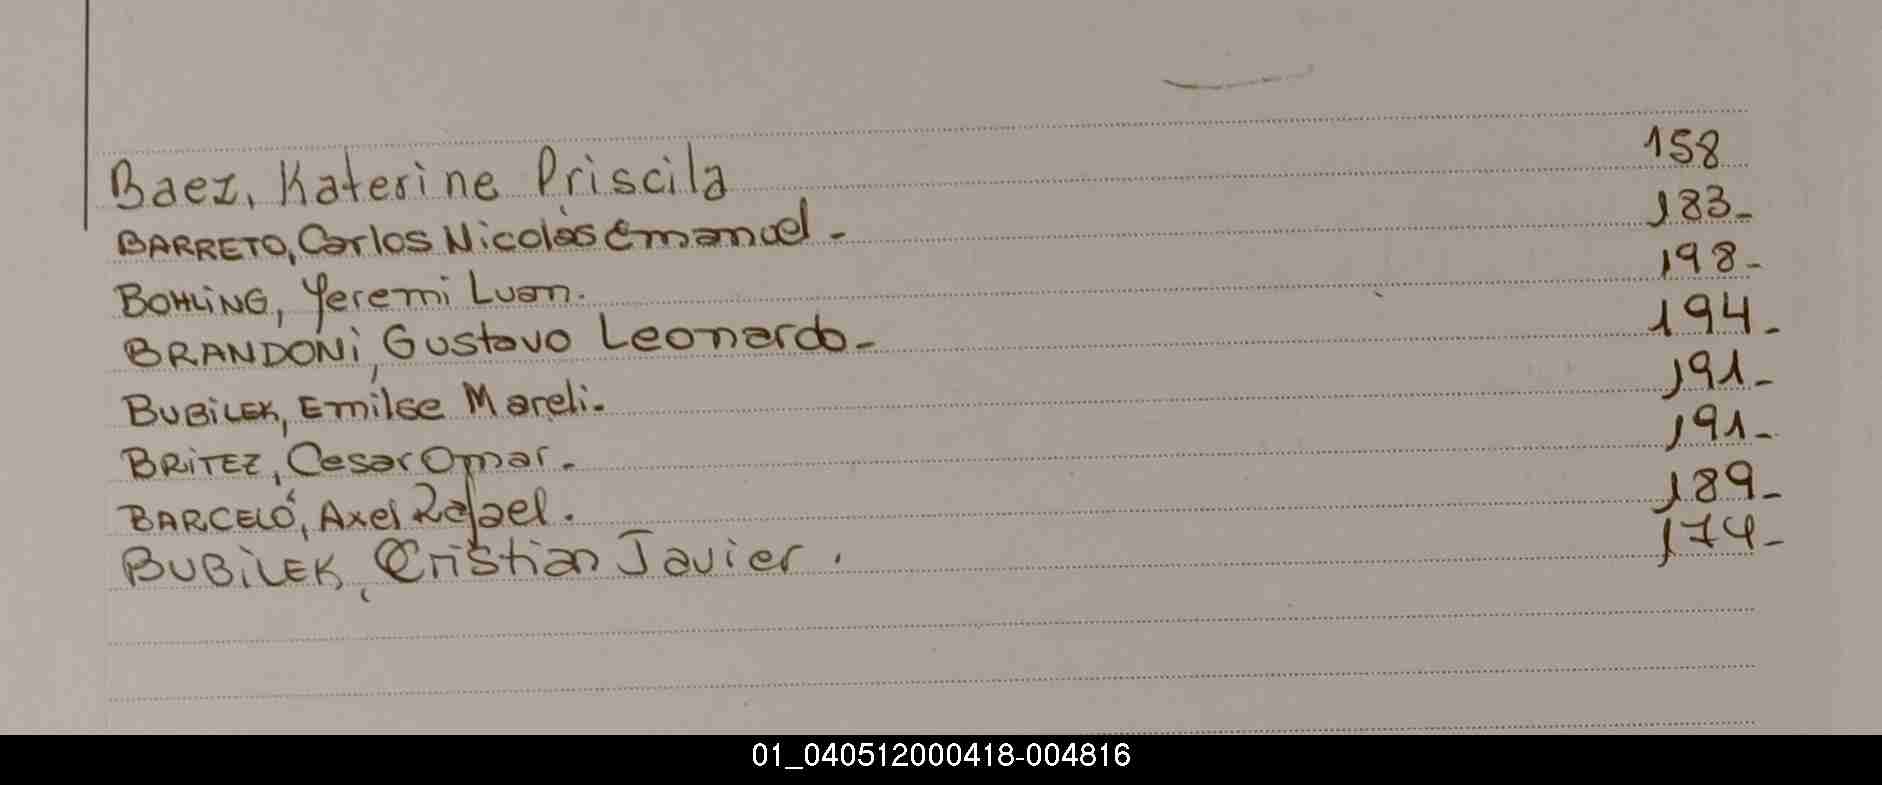 Baez, Katerine Priscila 158
BARRETO, Carlos Nicolás Emanuel - 183-
BOHLING, Yeremi Luan. 198-
BRANDONI, Gustavo Leonardo - 194-
BUBILEK, Emilse Mareli. 191-
BRITEZ, Cesar Omar. 191-
BARCELÓ, Axel Rafael. 189-
BUBILEK, Cristian Javier. 174-
01_040512000418-004816